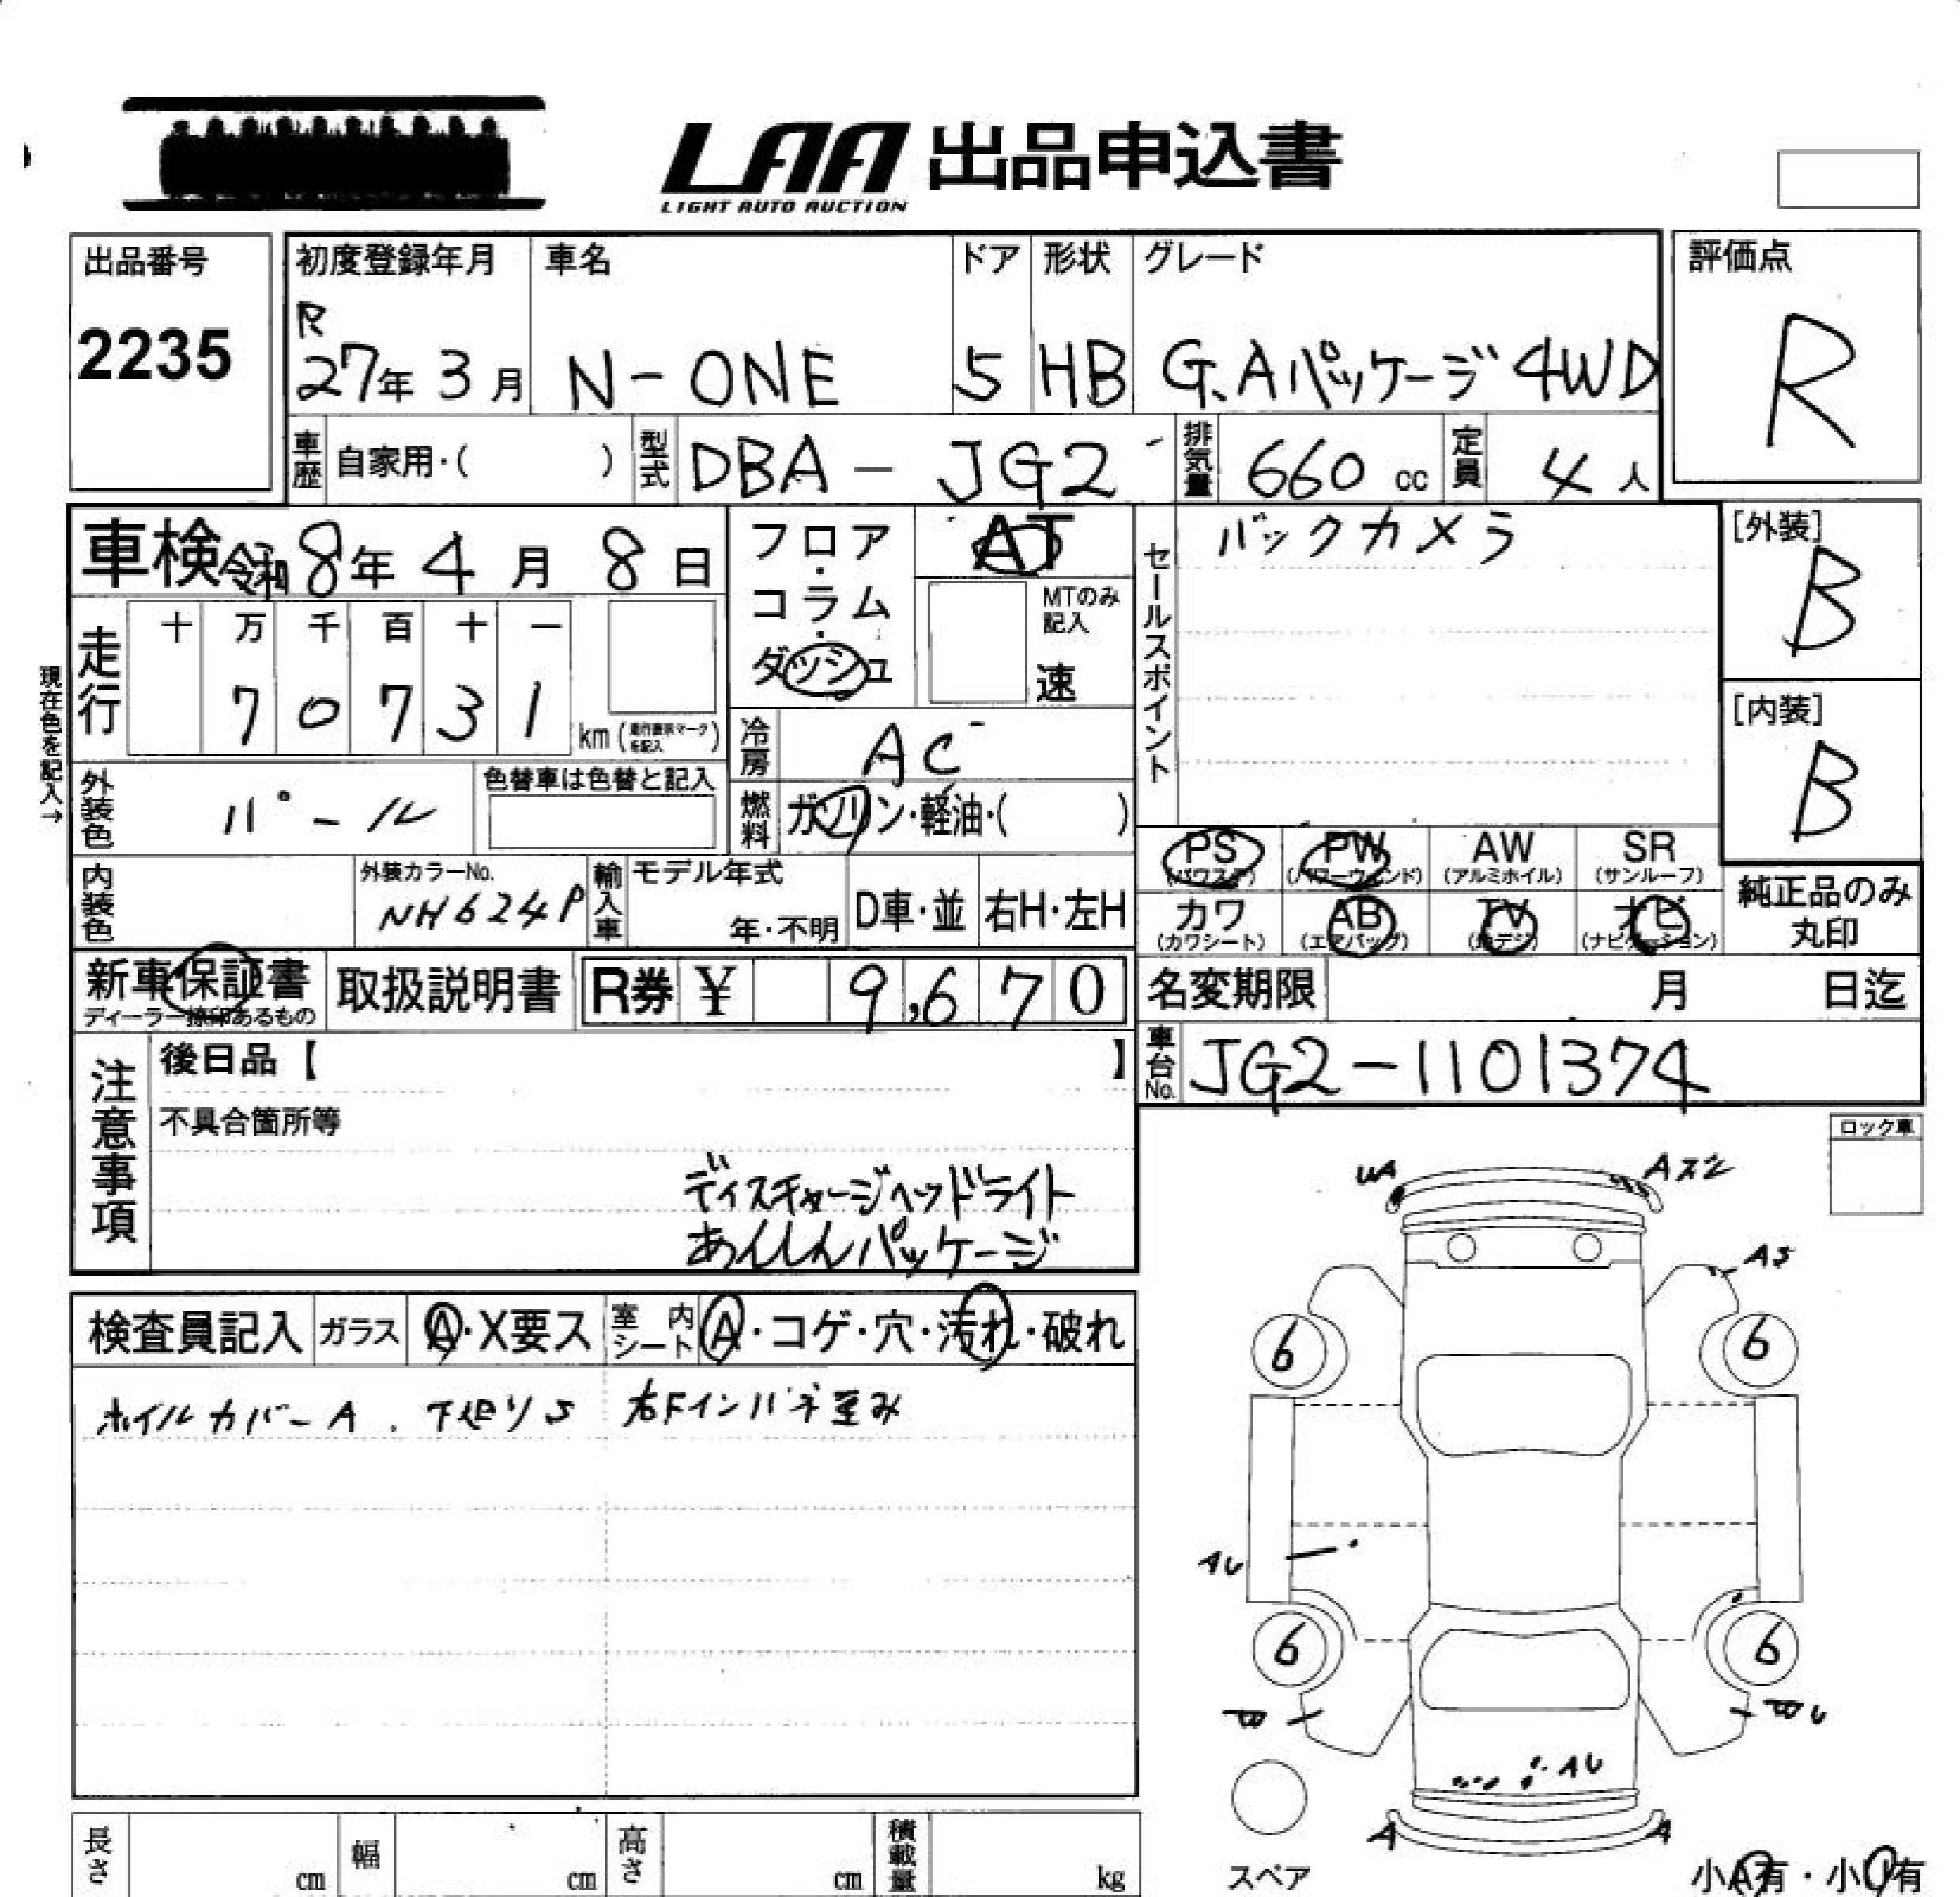 LAA 出品申込書
LIGHT AUTO AUCTION
出品番号
2235
初度登録年月
R
27年 3月
車名
N-ONE
ドア
5
形状
HB
グレード
G.Aパッケージ 4WD
評価点
R
車歴 自家用・( )
型式 DBA - JG2
排気量 660 cc
定員 4 人
車検 令和 8年 4月 8日
走行
十 万 千 百 十 一
7 0 7 3 1 km
現在色を記入→
フロア・コラム・ダッシュ
AT
MTのみ記入
速
冷房 AC
燃料 ガソリン・軽油・( )
セールスポイント
バックカメラ
[外装]
B
[内装]
B
外装色 パール
色替車は色替と記入
内装色
外装カラーNo.
NH624P
輸入車 モデル年式
年・不明
D車・並
右H・左H
PS
(パワステ)
PW
(パワーウィンド)
AW
(アルミホイル)
SR
(サンルーフ)
カワ
(カワシート)
AB
(エアバッグ)
TV
(地デジ)
ナビ
(ナビゲーション)
純正品のみ
丸印
新車保証書
ディーラー捺印あるもの
取扱説明書
R券 ¥ 9,670
名変期限 月 日迄
車台No. JG2-1101374
注意事項
後日品【 】
不具合箇所等
ディスチャージヘッドライト
あんしんパッケージ
ロック車
検査員記入 ガラス A・X要ス 室内シート A・コゲ・穴・汚れ・破れ
ホイルカバーA. 下廻りS 右Fインパネ歪み
UA
Aスレ
AS
6
6
AU
6
6
B
BU
AU
A
A
スペア
小A有・小U有
長さ cm
幅 cm
高さ cm
積載量 kg